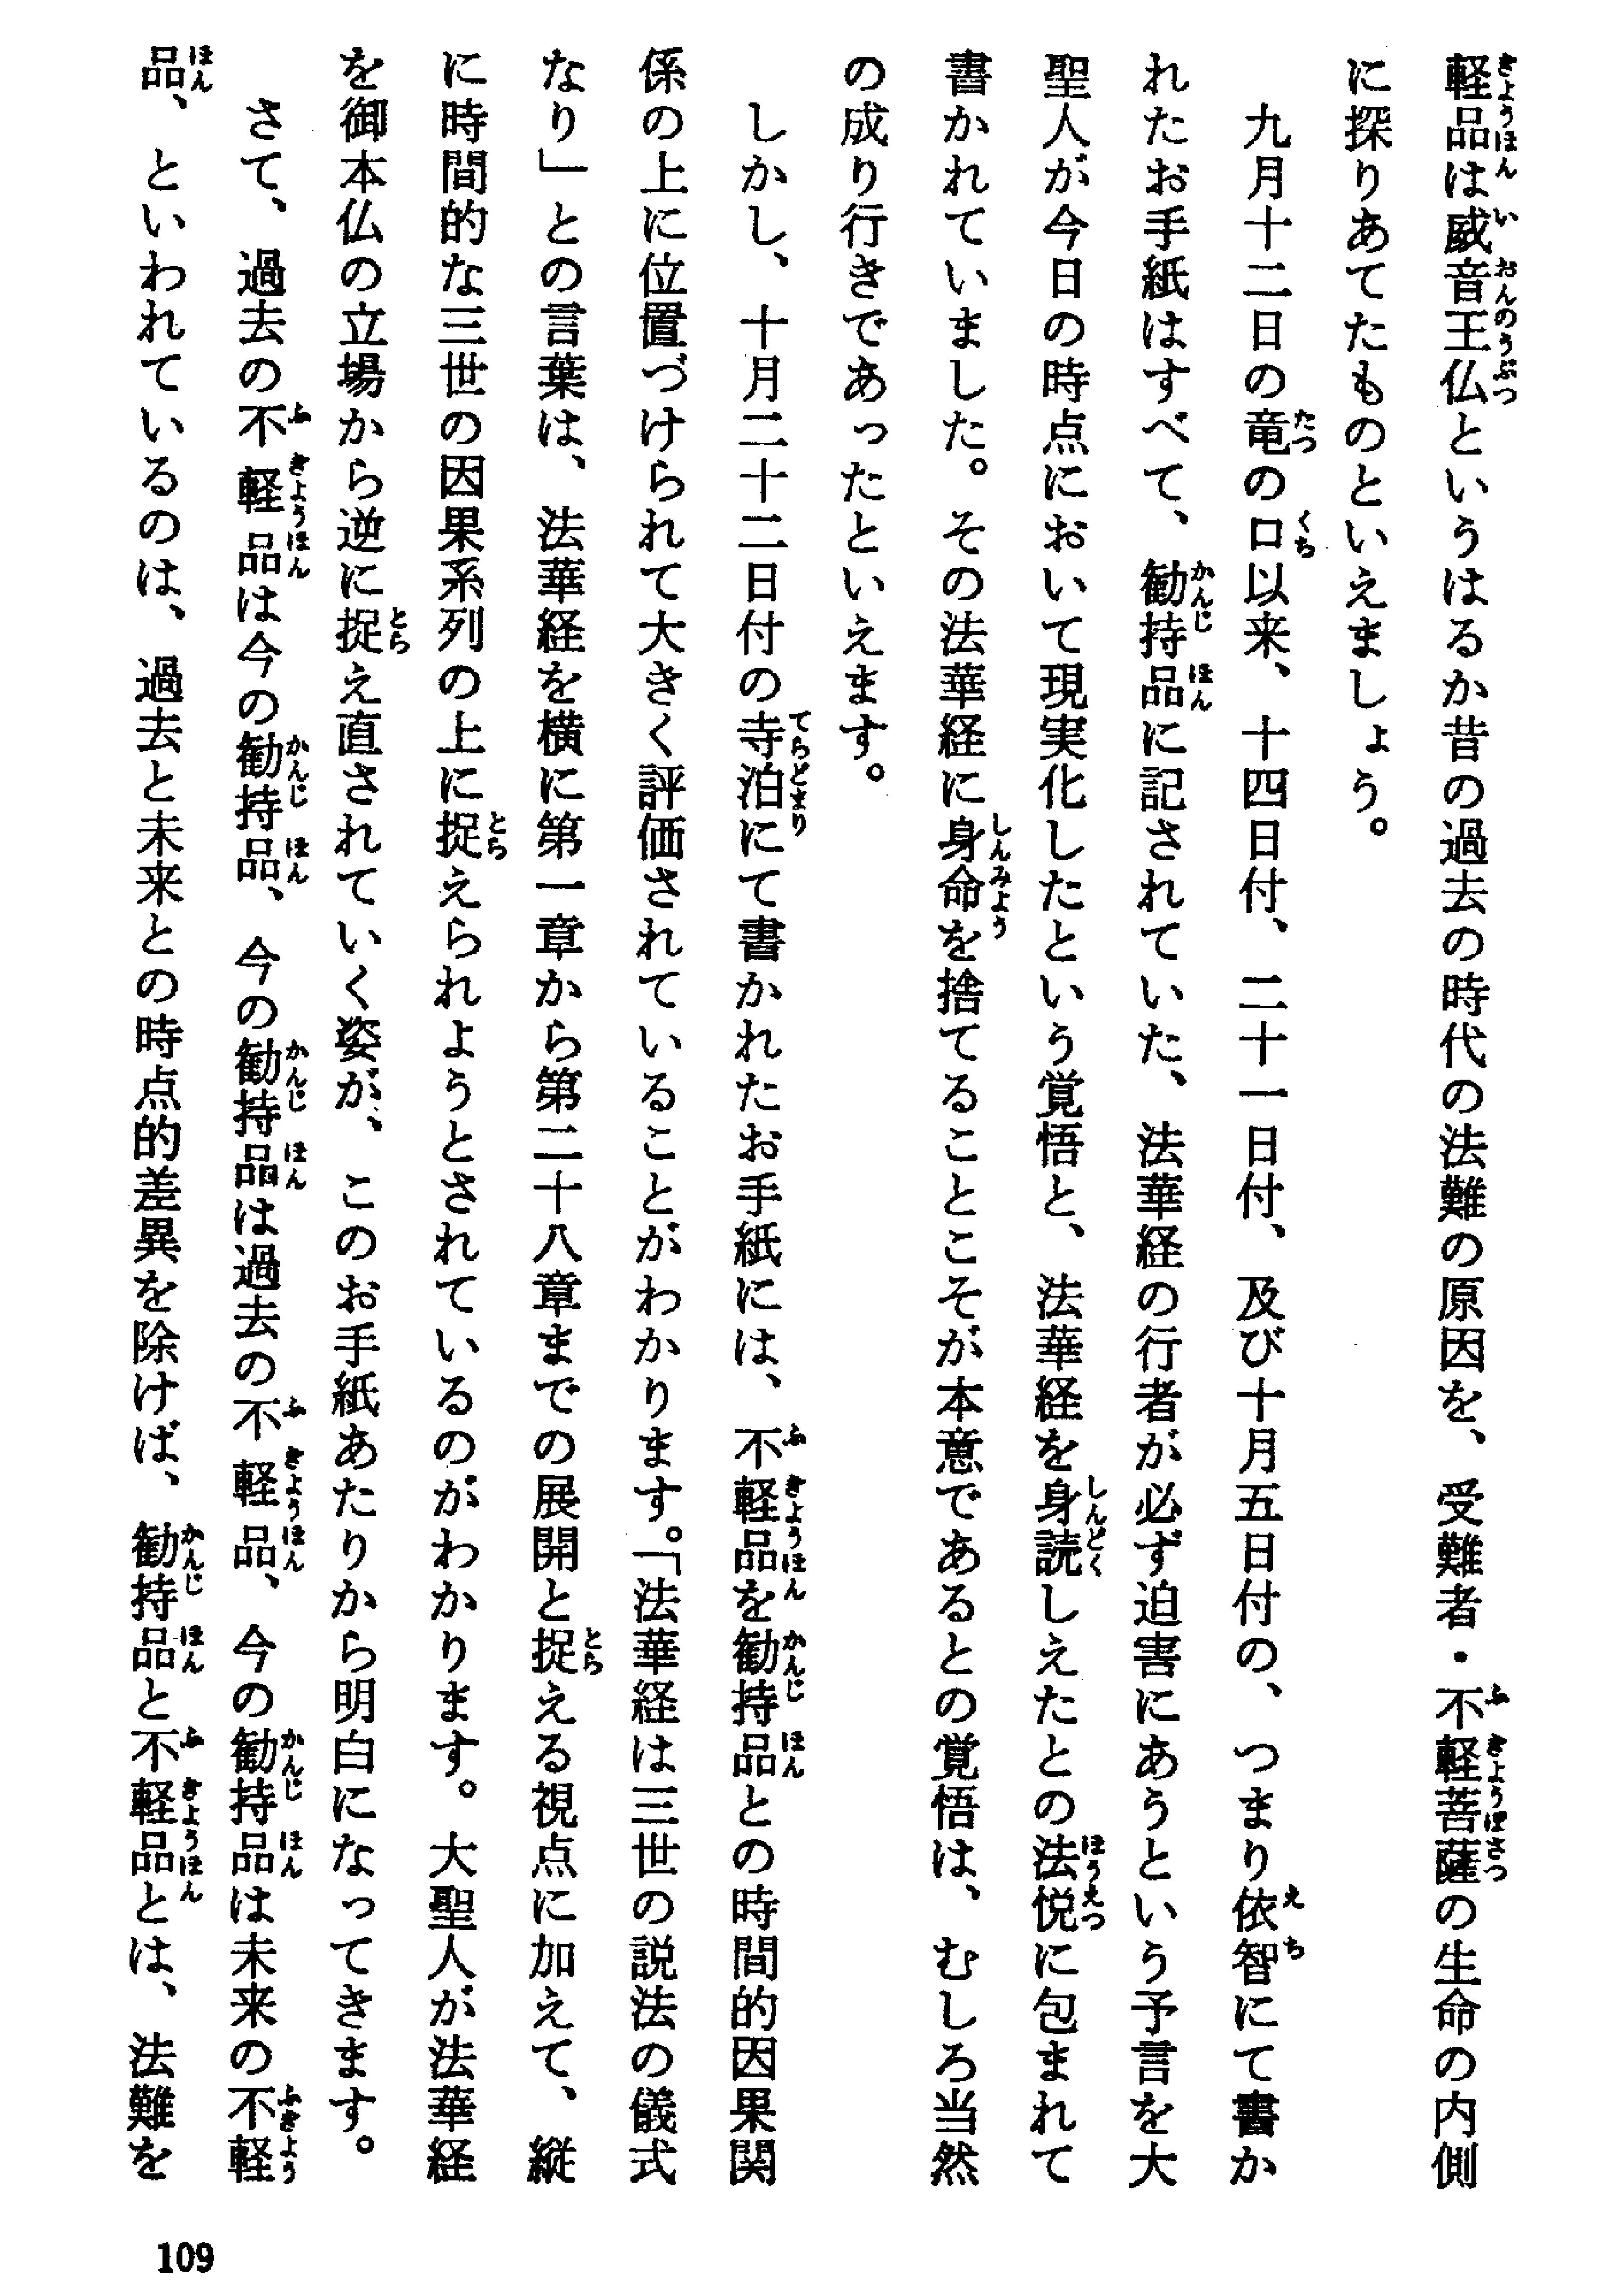 軽品は威音王仏というはるか昔の過去の時代の法難の原因を、受難者・不軽菩薩の生命の内側
に探りあてたものといえましょう。
九月十二日の竜の口以来、十四日付、二十一日付、及び十月五日付の、つまり依智にて書か
れたお手紙はすべて、勧持品に記されていた、法華経の行者が必ず迫害にあうという予言を大
聖人が今日の時点において現実化したという覚悟と、法華経を身読しえたとの法悦に包まれて
書かれていました。その法華経に身命を捨てることこそが本意であるとの覚悟は、むしろ当然
の成り行きであったといえます。
しかし、十月二十二日付の寺泊にて書かれたお手紙には、不軽品を勧持品との時間的因果関
係の上に位置づけられて大きく評価されていることがわかります。「法華経は三世の説法の儀式
なり」との言葉は、法華経を横に第一章から第二十八章までの展開と捉える視点に加えて、縦
に時間的な三世の因果系列の上に捉えられようとされているのがわかります。大聖人が法華経
を御本仏の立場から逆に捉え直されていく姿が、このお手紙あたりから明白になってきます。
さて、過去の不軽品は今の勧持品、今の勧持品は過去の不軽品、今の勧持品は未来の不軽
品、といわれているのは、過去と未来との時点的差異を除けば、勧持品と不軽品とは、法難を
109